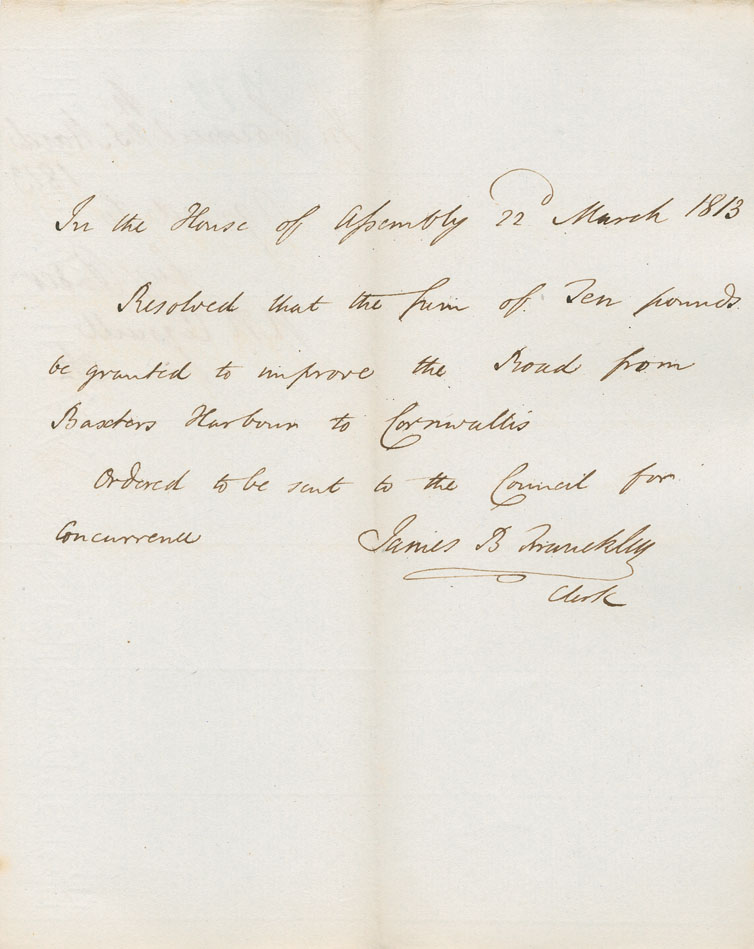 In the House of Assembly 22d March 1813
Resolved that the sum of Ten pounds
be granted to improve the Road from
Baxters Harbour to Cornwallis
Ordered to be sent to the Council for
Concurrence James B Franckly
Clerk